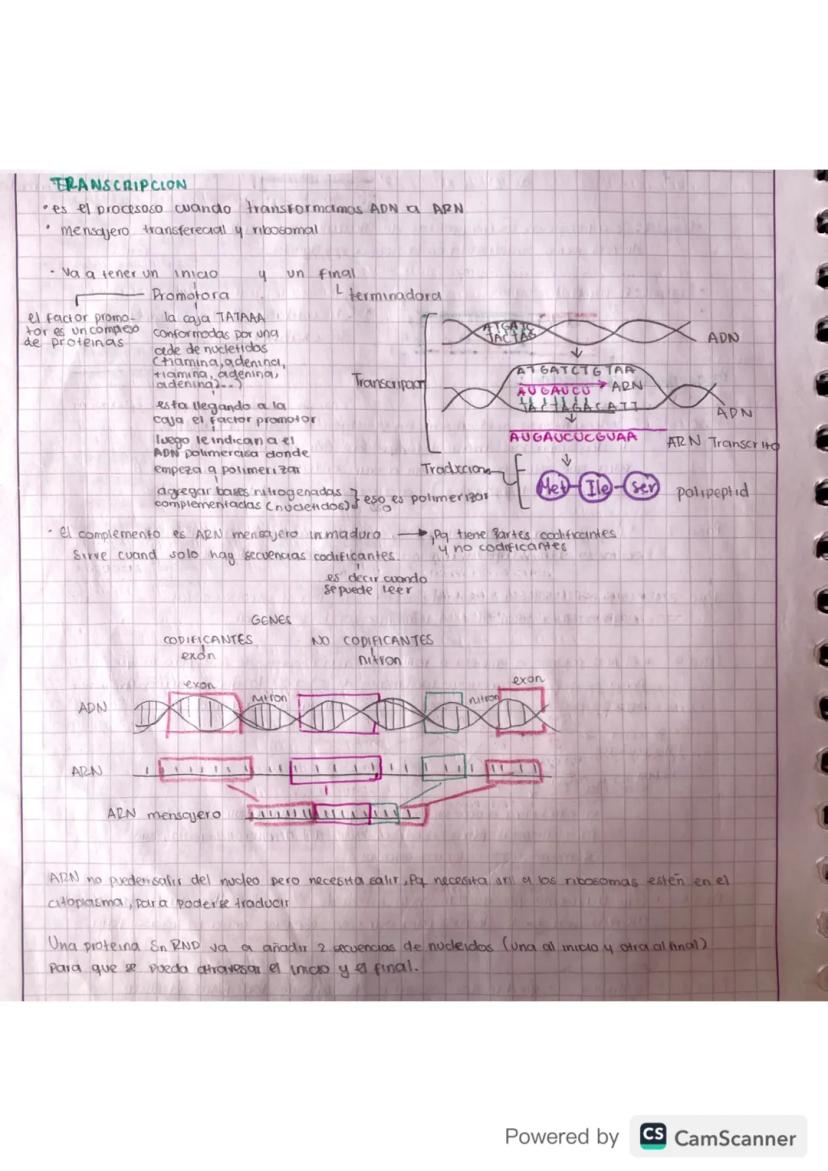 TRANSCRIPCION
• es el procesoso cuando transformamos ADN a ARN
• mensajero transferecial y ribosomal
• Va a tener un inicio y un final
Promotora
terminadora
el factor promo-
tor es un complejo
de proteinas
la caja TATAAA
conformadas por una
cede de nucletidos
(tiamina, adenina,
tiamina, adenina,
adenina...)
esta llegando a la
caja el factor promotor
luego le indican a el
ADN polimerasa donde
empeza a polimerizar
agregar bases nitrogenadas
complementadas (nucletidos)
eso es polimerizar
Transcripcion
ATGATC
TACTAG
ADN
ATGATCTGTAA
AUGAUCU → ARN
TACTAGACATT
ADN
AUGAUCUCGUAA
ARN Transcrito
Traduccion
Met-Ile-Ser
polipeptid
• el complemento es ARN mensajero inmaduro → Pq tiene partes codificantes
y no codificantes
Sirve cuand solo hay secuencias codificantes
es decir cuando
se puede leer
GENES
CODIFICANTES
exón
NO CODIFICANTES
nitron
ADN
exon
nitron
nitron
exon
ARN
ARN mensajero
ARN no pueden salir del nucleo pero necesita salir, Pq necesita a los ribosomas estén en el
citoplasma, para poderse traducir
Una proteina SnRND va a añadir 2 secuencias de nucleidos (una al inicio y otra al final)
para que se pueda atravesar el inicio y el final.
Powered by CS CamScanner